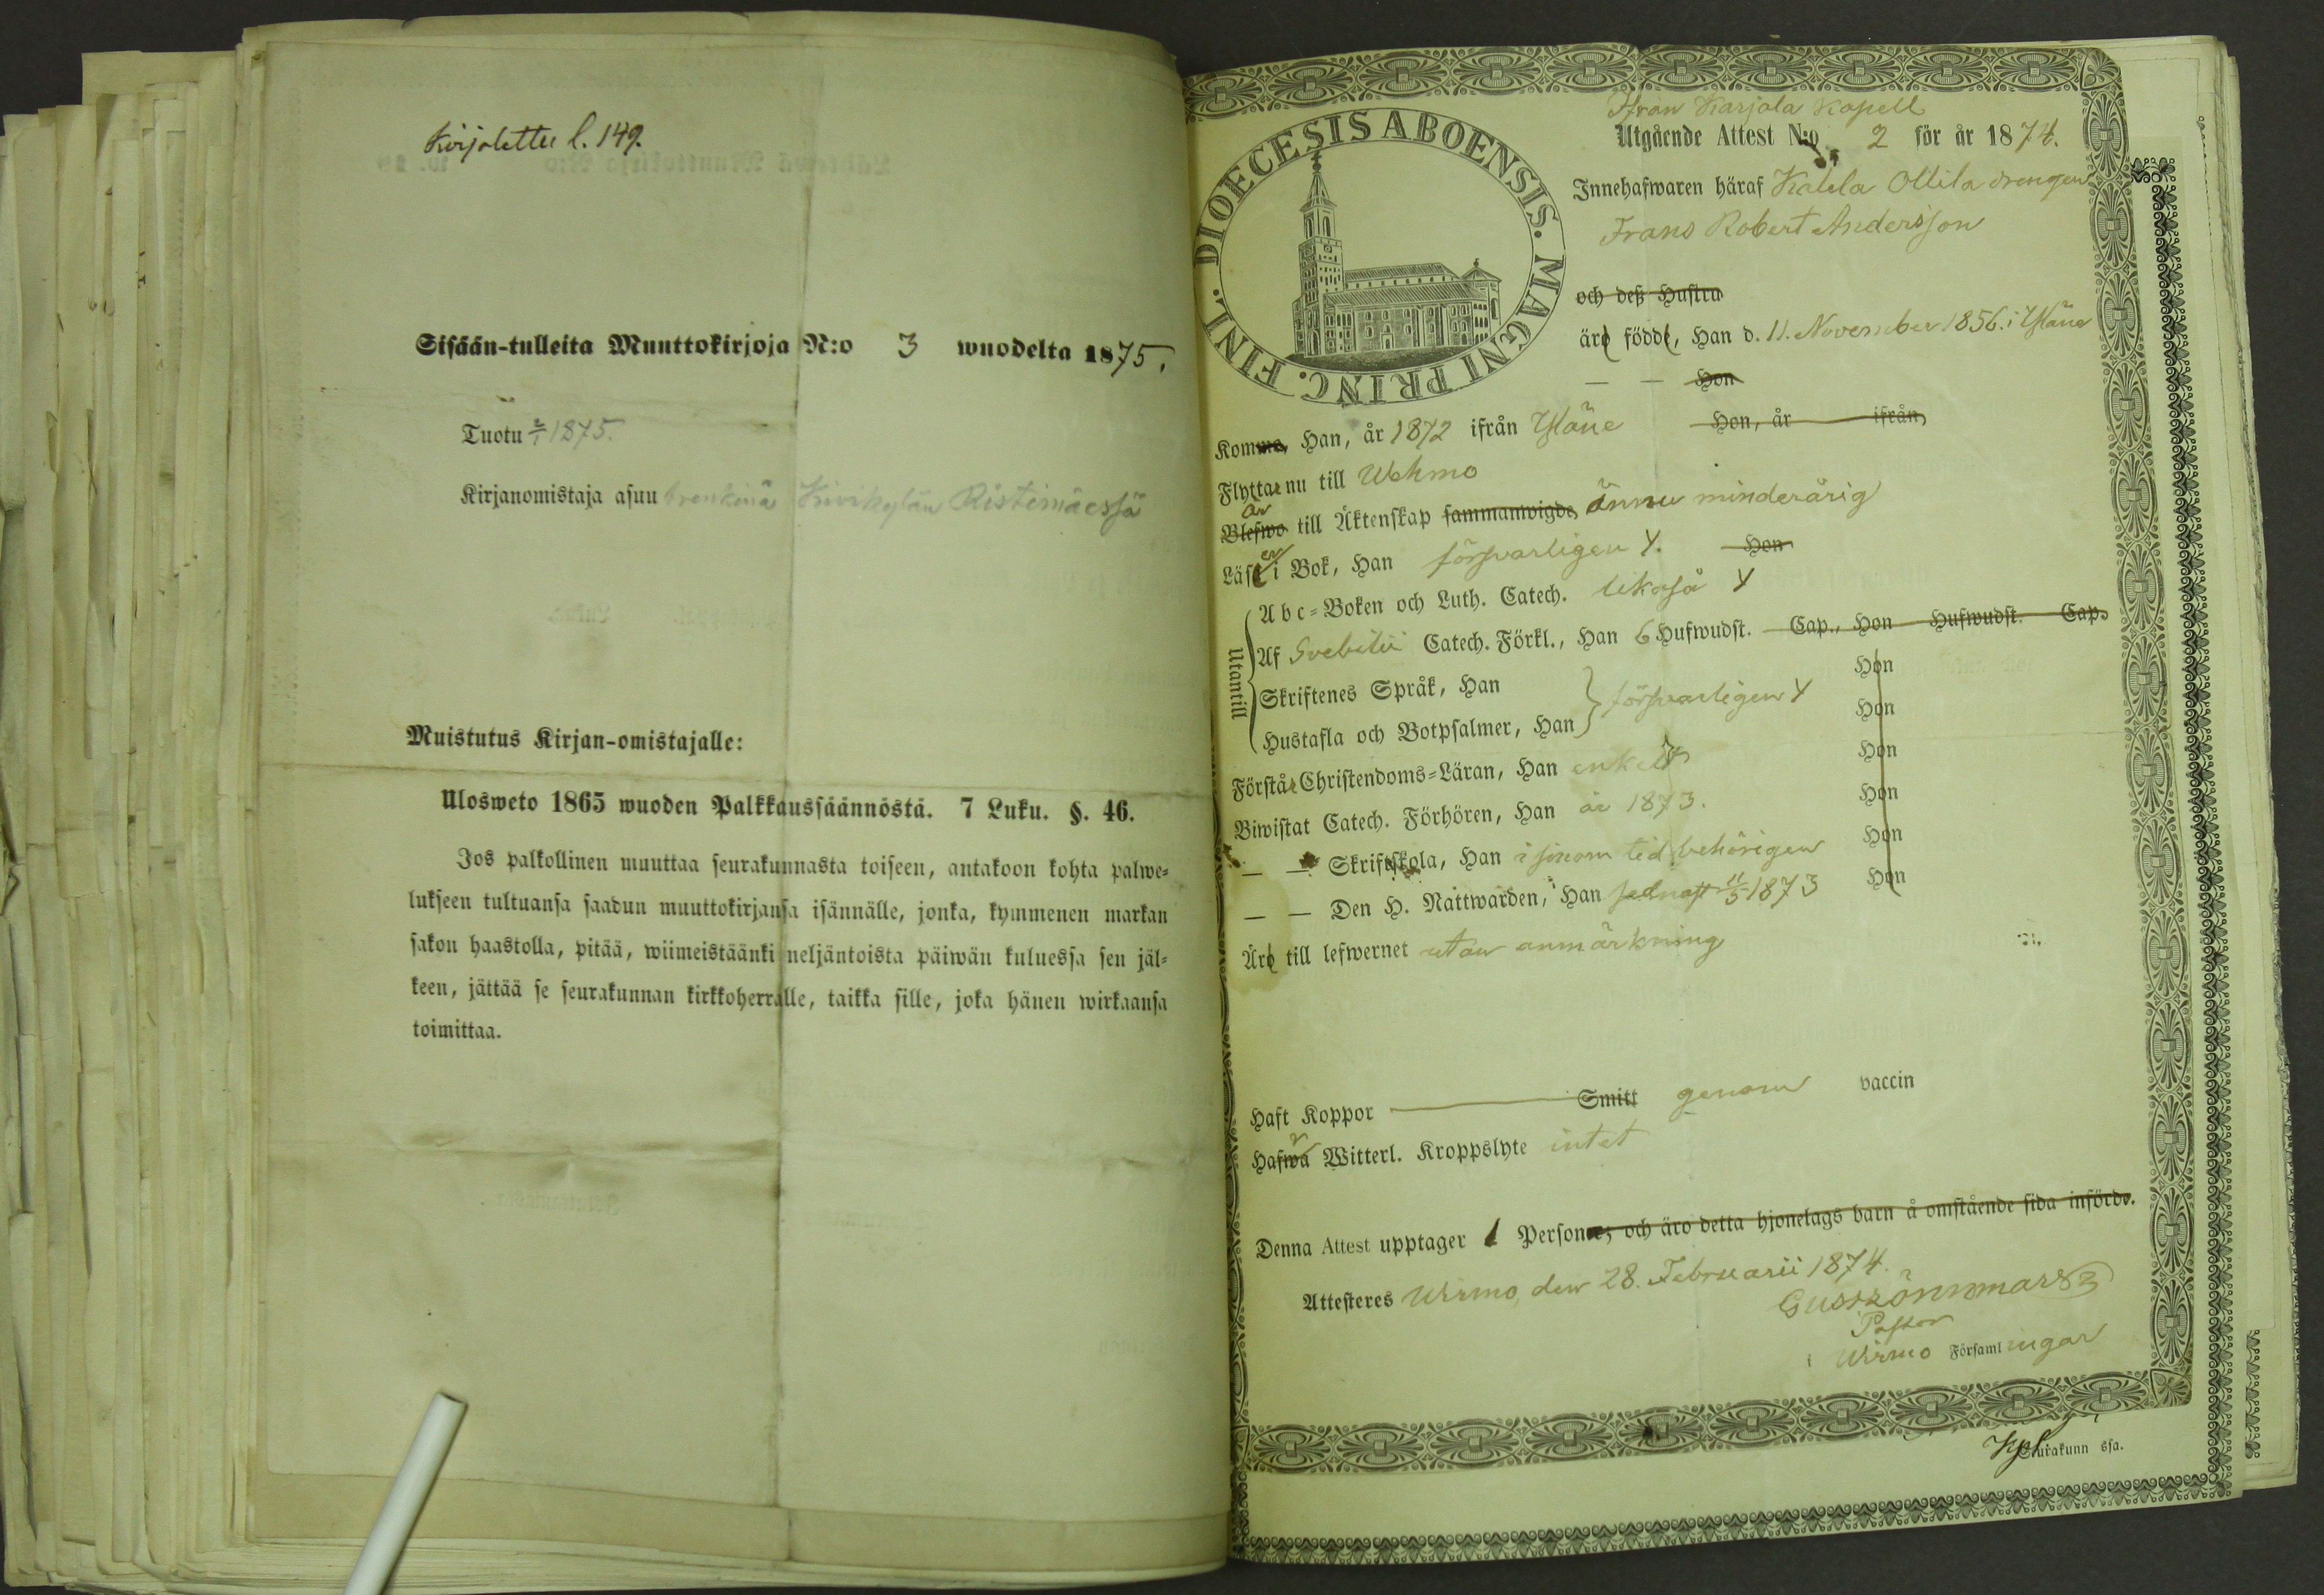 Kirjolettu l. 149.
Sisään-tulleita Muuttokirjoja N:o 3 wuodelta 1875.
Tuotu 2/1 1875.
Kirjanomistaja asuu trenkinä Kivikylän Ristimäessä
Muistutus Kirjan-omistajalle:
Ulosweto 1865 wuoden Palkkaussäännöstä. 7 Luku. §. 46.
Jos palkollinen muuttaa seurakunnasta toiseen, antakoon kohta palwe-
lukseen tultuansa saadun muuttokirjansa isännälle, jonka, kymmenen markan
sakon haastolla, pitää, wiimeistäänki neljäntoista päiwän kuluessa sen jäl-
keen, jättää se seurakunnan kirkkoherralle, taikka sille, joka hänen wirkaansa
toimittaa.
FINL. DIOECESIS ABOENSIS. MAGNI PRINC.
Ifrån Karjala Kapell
Utgående Attest N:o 2 för år 1874.
Innehafwaren häraf Kalela Ollila drengen
Frans Robert Andersson
och deß Hustru
äro födde, Han d. 11. November 1856. i Yläne
— — Hon
Komma, Han, år 1872 ifrån Yläne Hon, år ifrån,
Flyttar nu till Wehmo
är
Blefwo till Äktenskap sammanwigde, ännu minderårig
Läser i Bok, Han försvarligen Y. Hon
Utantill
Abc-Boken och Luth. Catech. likaså Y
Af Svebilii Catech. Förkl., Han 6 Hufwudst. Cap., Hon Hufwudst. Cap.
Skriftenes Språk, Han Hon
Hustafla och Botpsalmer, Han försvarligen Y Hon
Förstår Christendoms-Läran, Han enkelt Hon
Biwistat Catech. Förhören, Han år 1873. Hon
— — Skriftskola, Han i sinom tid behörigen Hon
— — Den H. Nattwarden, Han sednast 11/5 1873 Hon
Äro till lefwernet utan anmärkning
Haft Koppor Smitt genom vaccin
Hafwa Witterl. Kroppslyte intet
Denna Attest upptager 1 Personer, och äro detta hjonelags barn å omstående sida införde.
Attesteres Wirmo, den 28. Februarii 1874.
Pastor
i Wirmo Församlingar
Kpl.
Seurakunn ssa.